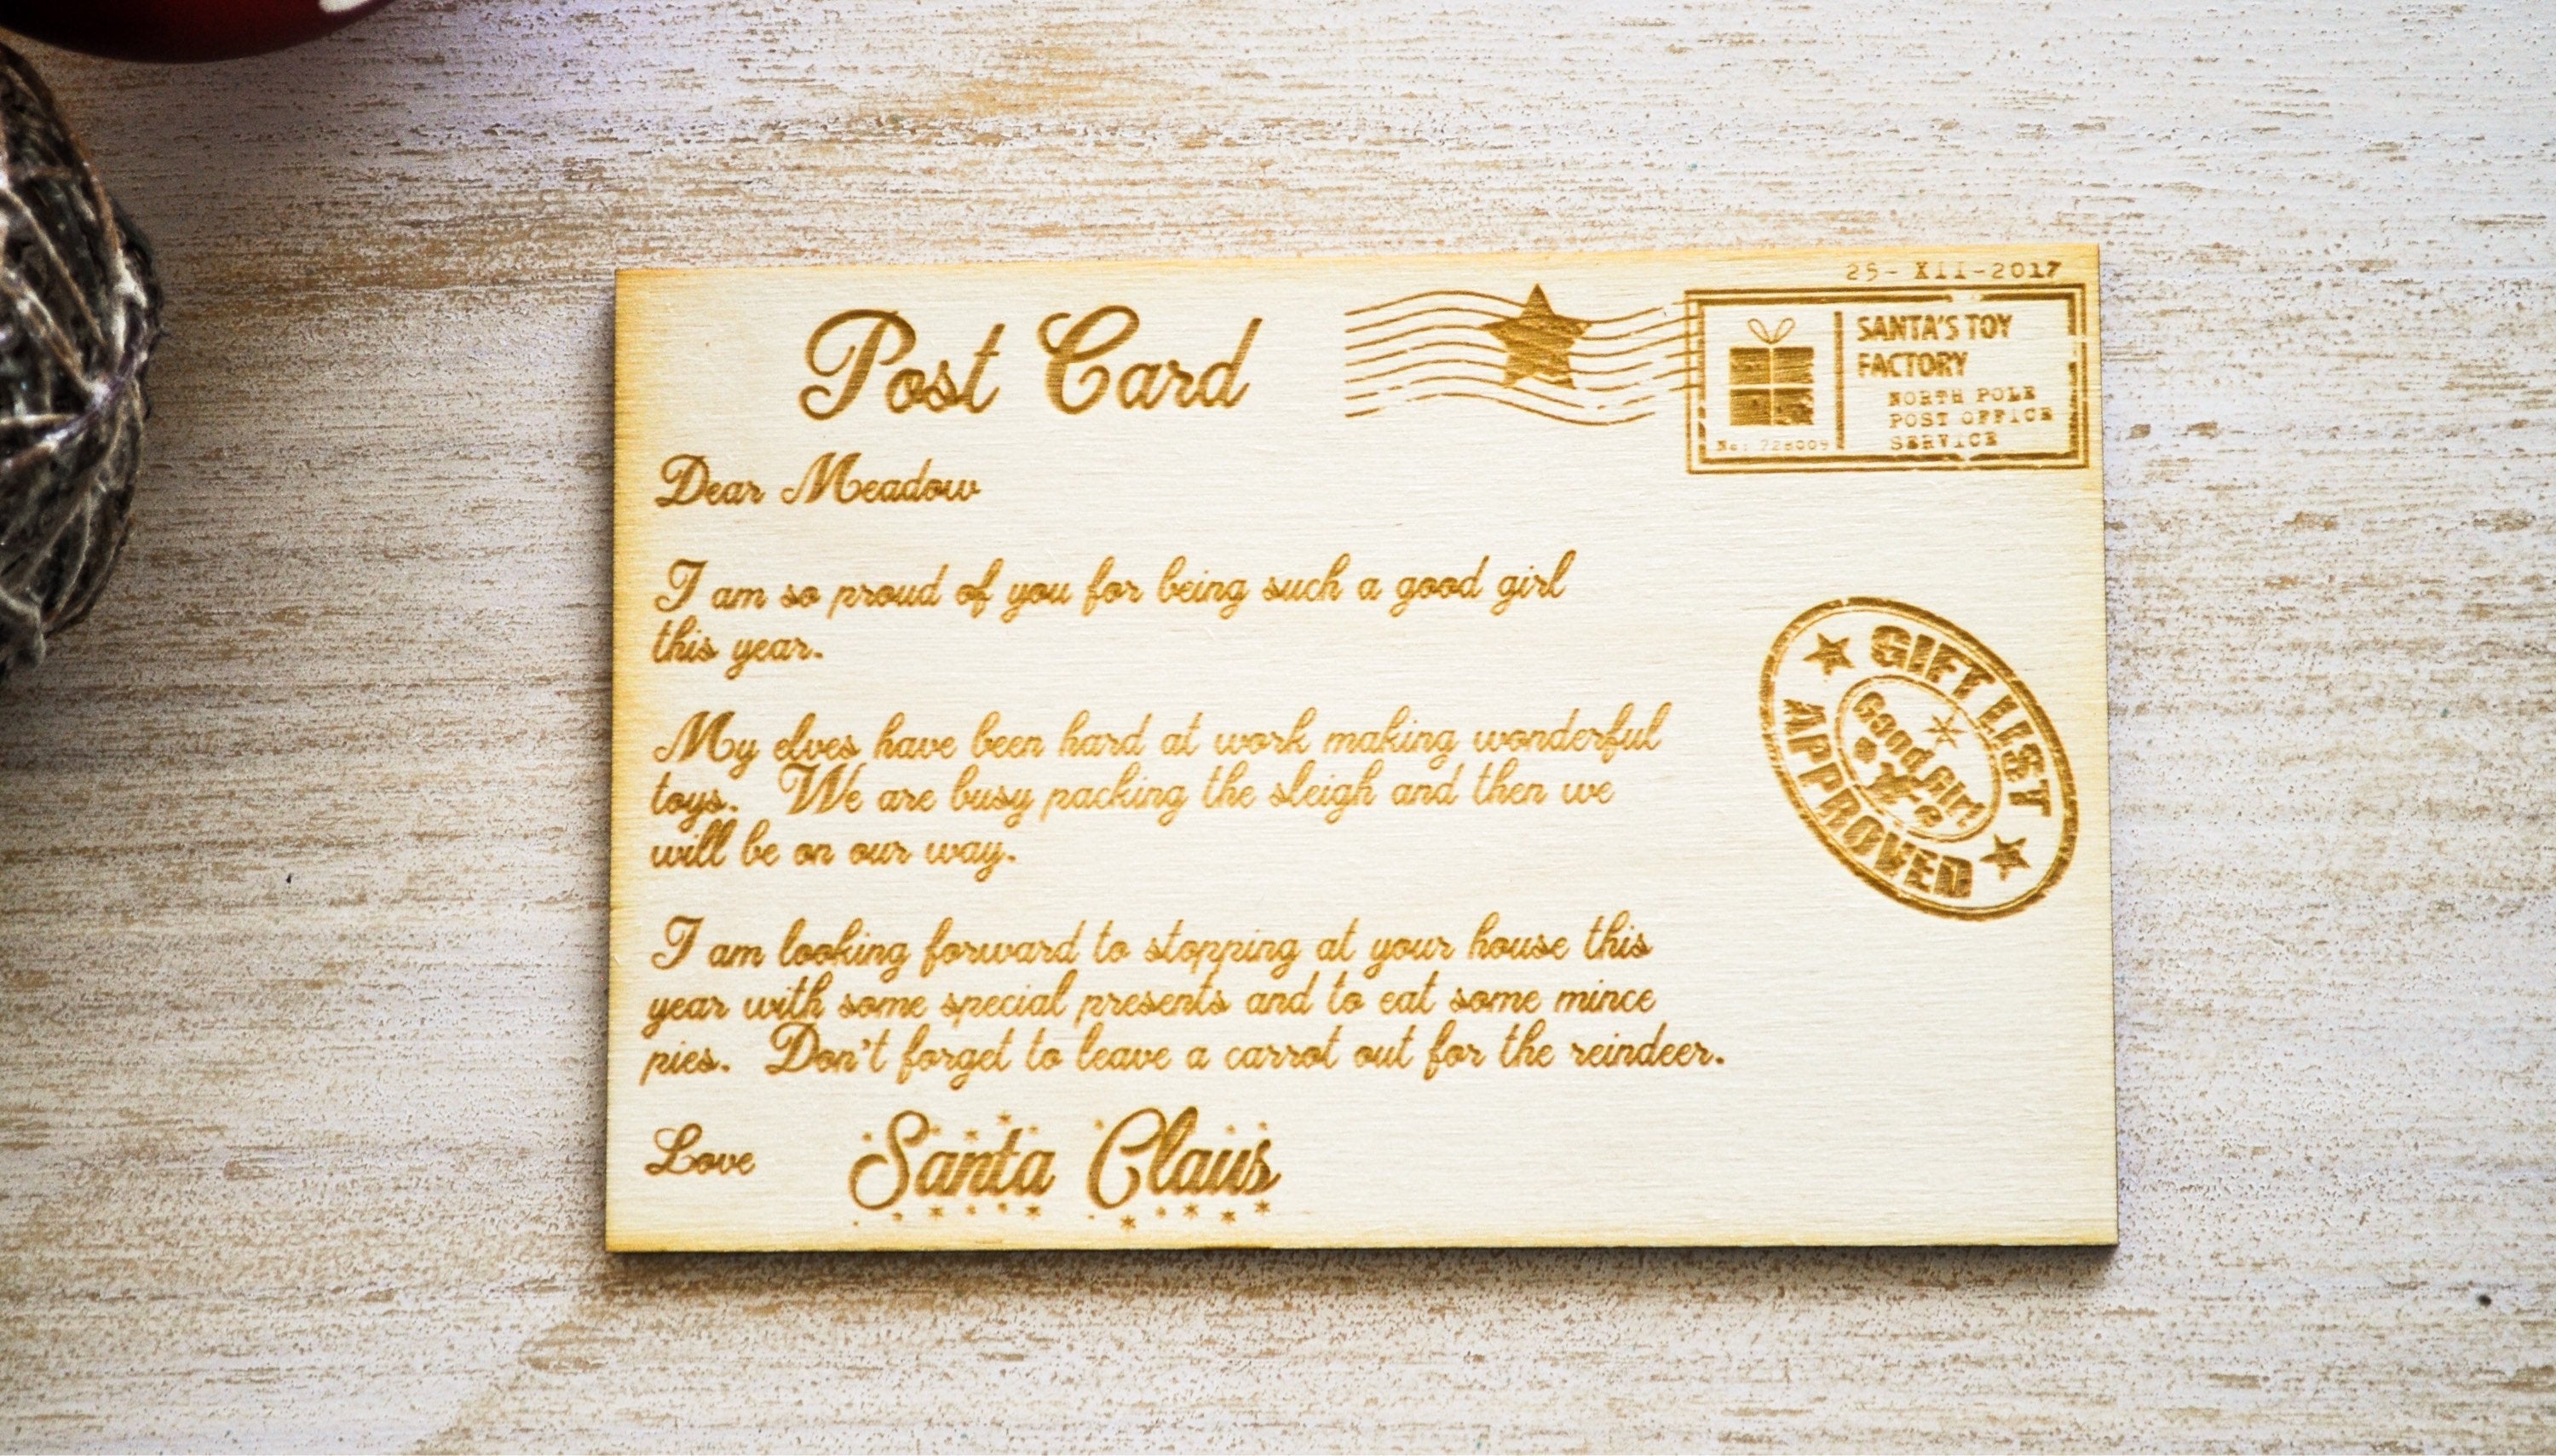 25- XII-2017
Post Card
SANTA'S TOY
FACTORY
NORTH POLE
POST OFFICE
SERVICE
No: 728009
Dear Meadow
I am so proud of you for being such a good girl
this year.
My elves have been hard at work making wonderful
toys. We are busy packing the sleigh and then we
will be on our way.
I am looking forward to stopping at your house this
year with some special presents and to eat some mince
pies. Don't forget to leave a carrot out for the reindeer.
Love Santa Claus
GIFT LIST
Good Girl
APPROVED